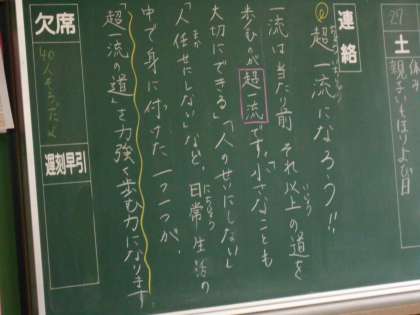 29
土
休み
親子いもほり よび日
連絡
超一流になろう!!
一流は当たり前 それ以上の道を
いじょう
歩むのが超一流です。小さなことも
大切にできる」「人のせいにしない」
「人任せにしない」など、日常生活の
まか
にちじょう
中で身に付けた一つ一つが、
「超一流の道」を力強く歩む力になります。
欠席
40人そろったよ
遅刻早引